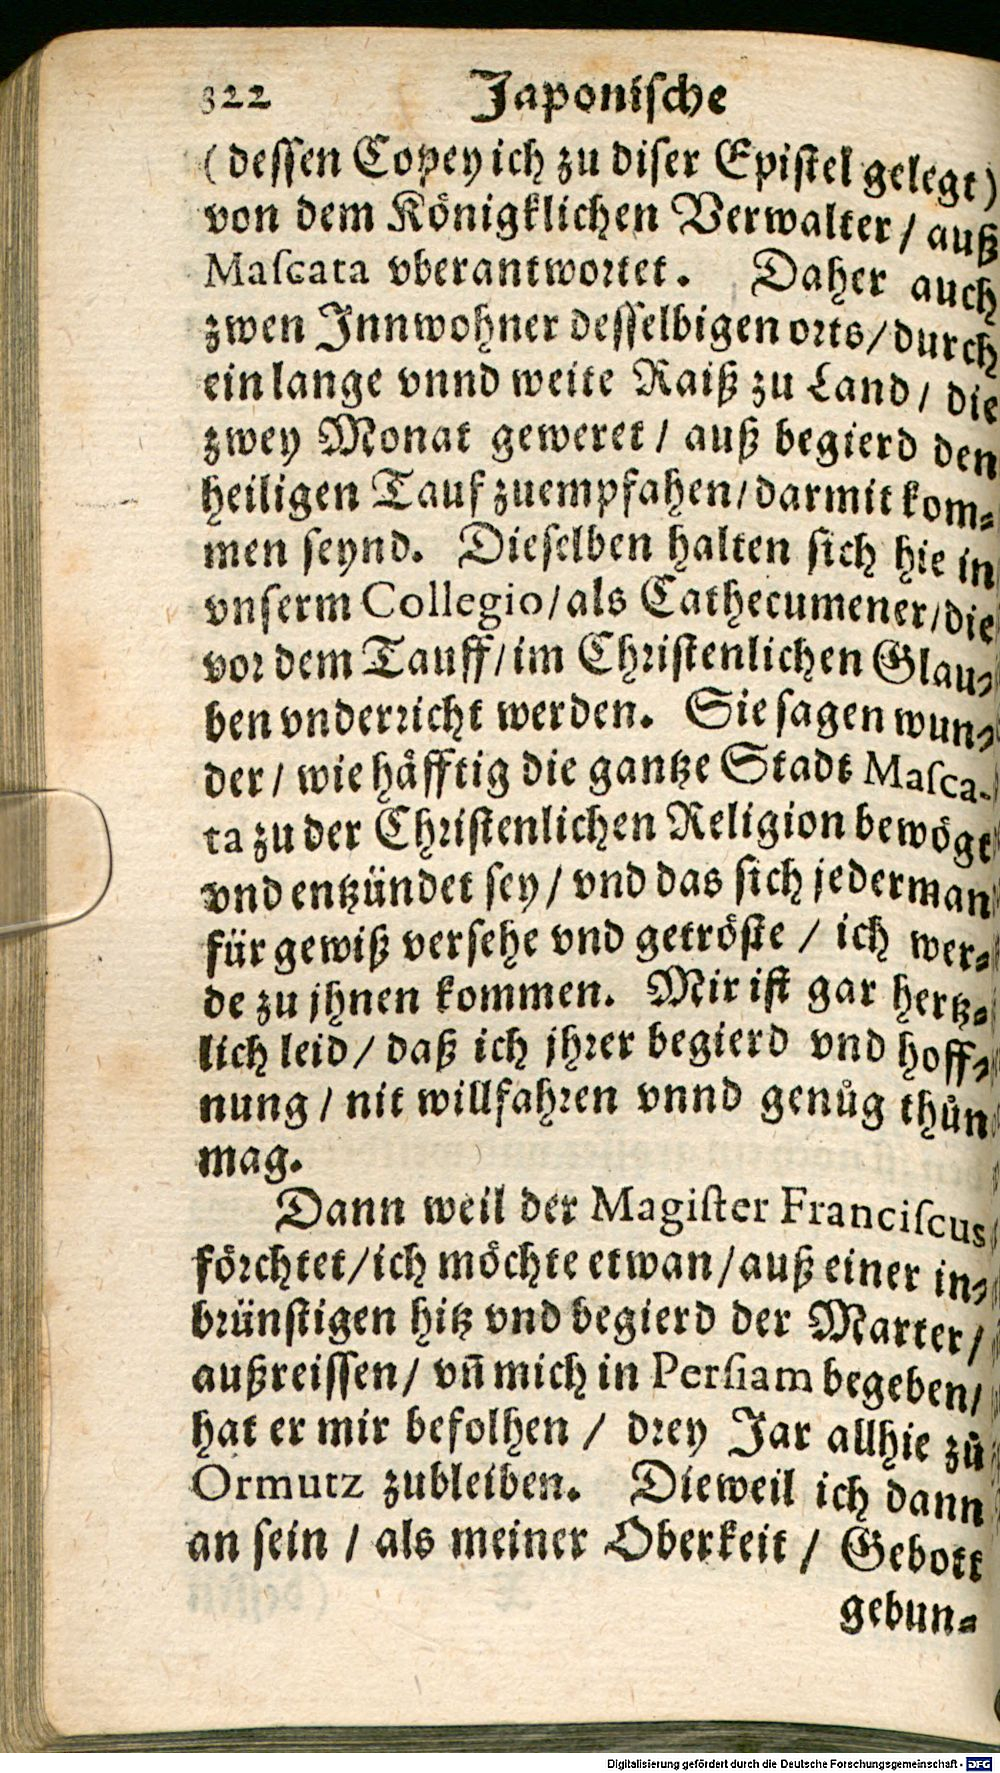 322 Japonische
(dessen Copey ich zu diser Epistel gelegt)
von dem Königklichen Verwalter / auß
Maſcata vberantwortet. Daher auch
zwen Innwohner desselbigen orts / durch
ein lange vnnd weite Raiß zu Land / die
zwey Monat geweret / auß begierd den
heiligen Tauf zuempfahen / darmit kom⸗
men seynd. Dieselben halten sich hie in
vnserm Collegio / als Cathecumener / die
vor dem Tauff / im Christenlichen Glau⸗
ben vnderricht werden. Sie sagen wun⸗
der / wie håfftig die gantze Stadt Maſca-
ta zu der Christenlichen Religion bewögt
vnd entzündet sey / vnd das sich jederman
für gewiß versehe vnd getröste / ich wer⸗
de zu jhnen kommen. Mir ist gar hertz⸗
lich leid / daß ich jhrer begierd vnd hoff⸗
nung / nit willfahren vnnd genůg thůn
mag.
Dann weil der Magiſter Franciſcus
förchtet / ich möchte etwan / auß einer in⸗
brünstigen hitz vnd begierd der Marter /
außreissen / vn̄ mich in Perſiam begeben /
hat er mir befolhen / drey Jar allhie zů
Ormutz zubleiben. Dieweil ich dann
an sein / als meiner Oberkeit / Gebott
gebun⸗
Digitalisierung gefördert durch die Deutsche Forschungsgemeinschaft - DFG